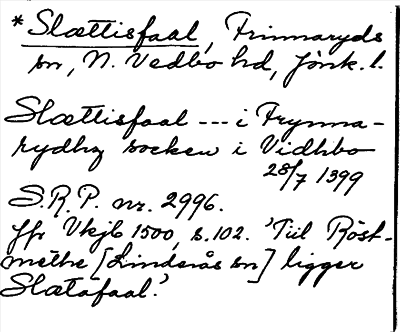 * Slættisfaal, Frinnaryds
sn, N. Vedbo hd, Jönk. l.
Slættisfaal --- i Frynna-
rydhz socken i Vidhbo
28/7 1399
S.R.P. nr. 2996.
ffr Vkjb 1500, s. 102. 'Till Röst-
mëlhe [Linderås sn] ligger
Slætafaal.'